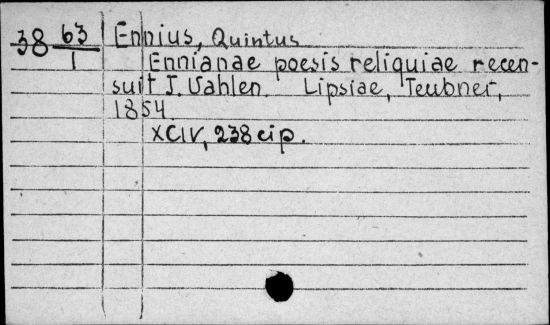 38 63/1 Ennius, Quintus
Ennianae poesis reliquiae recen-
suit I. Vahlen. Lipsiae, Teubner,
1854.
XCIV, 238 c̨ip.